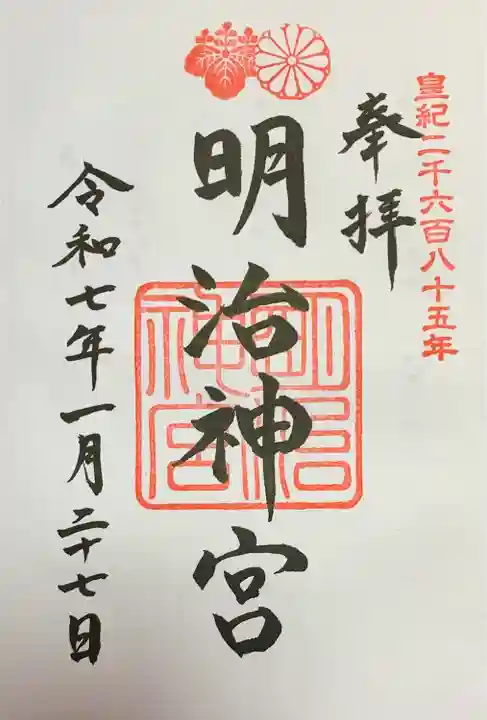 皇紀二千六百八十五年
奉拝
明治神宮
明治神宮
令和七年一月二十七日